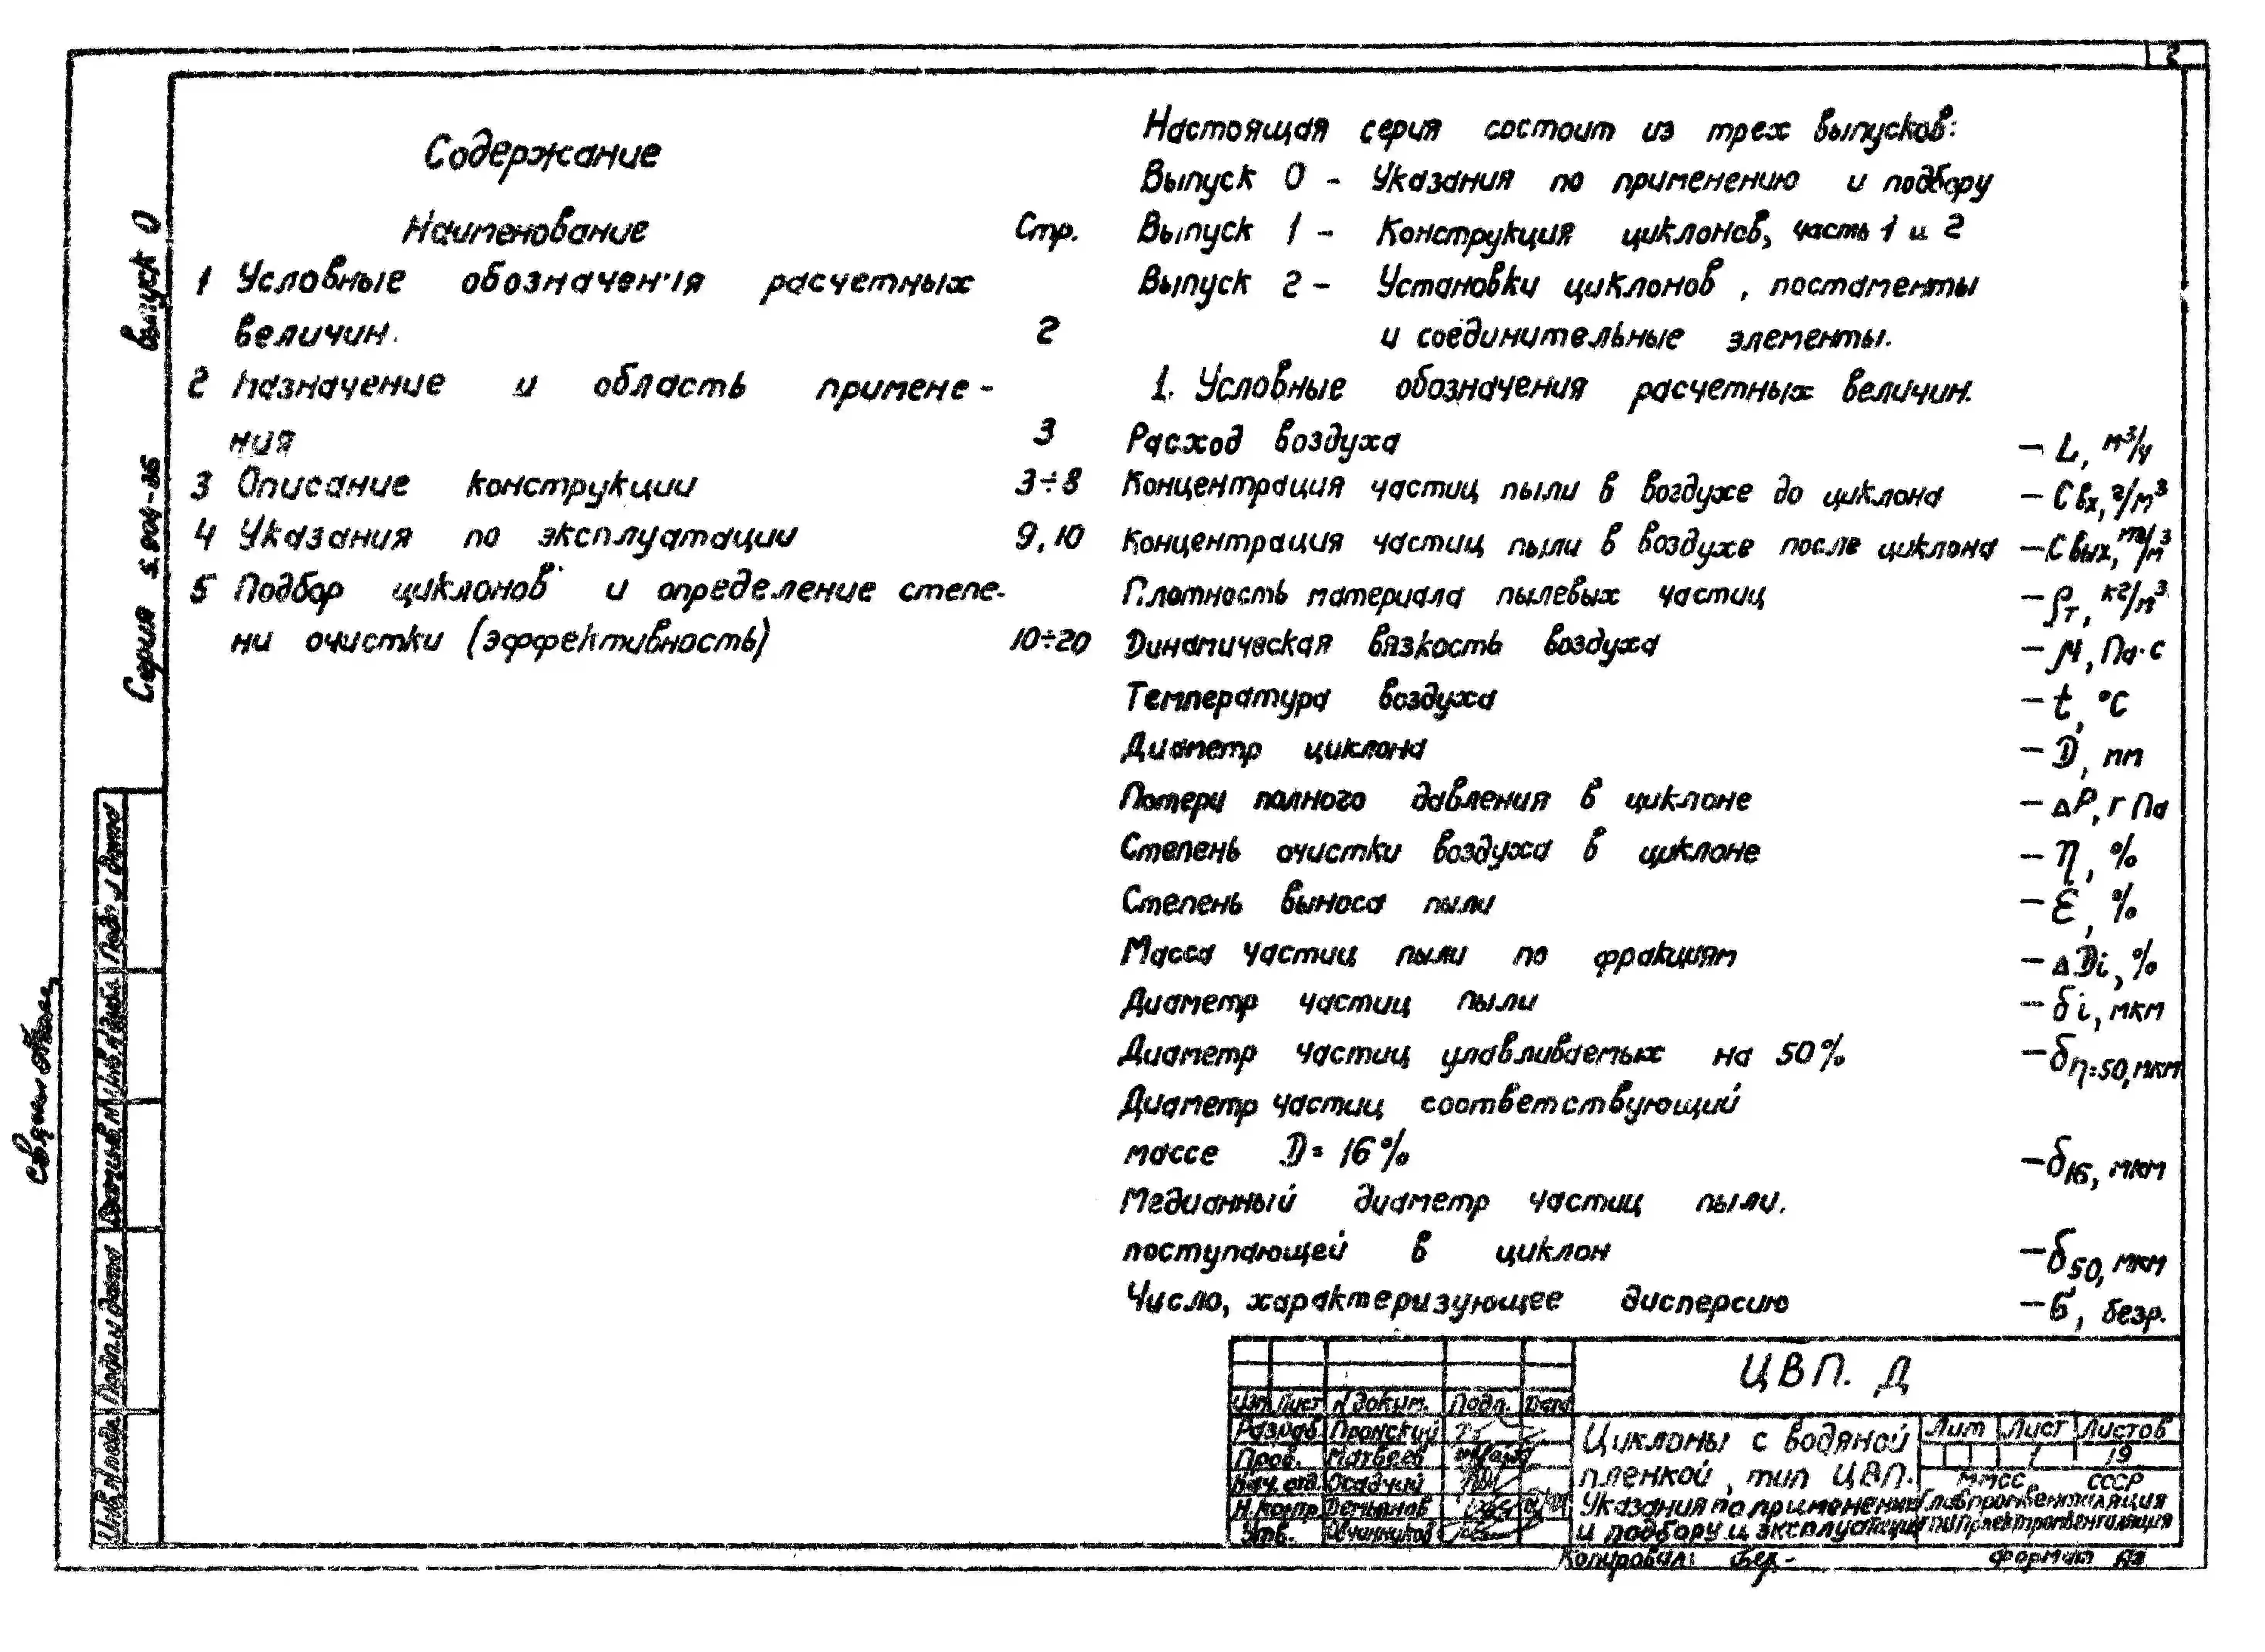 2
Содержание
Наименование Стр.
1 Условные обозначения расчетных
величин. 2
2 Назначение и область примене-
ния 3
3 Описание конструкции 3÷8
4 Указания по эксплуатации 9,10
5 Подбор циклонов и определение степе-
ни очистки (эффективность) 10÷20
Настоящая серия состоит из трех выпусков:
Выпуск 0 - Указания по применению и подбору
Выпуск 1 - Конструкция циклонов, часть 1 и 2
Выпуск 2 - Установки циклонов, постаменты
и соединительные элементы.
1. Условные обозначения расчетных величин.
Расход воздуха - L, м³/ч
Концентрация частиц пыли в воздухе до циклона - Свх, г/м³
Концентрация частиц пыли в воздухе после циклона - Свых, мг/м³
Плотность материала пылевых частиц - ρт, кг/м³
Динамическая вязкость воздуха - μ, Па·с
Температура воздуха - t, °С
Диаметр циклона - D, мм
Потери полного давления в циклоне - ΔP, гПа
Степень очистки воздуха в циклоне - η, %
Степень выноса пыли - ε, %
Масса частиц пыли по фракциям - ΔDi, %
Диаметр частиц пыли - δi, мкм
Диаметр частиц улавливаемых на 50% - δη=50, мкм
Диаметр частиц соответствующий
массе D=16% - δ16, мкм
Медианный диаметр частиц пыли.
поступающей в циклон - δ50, мкм
Число, характеризующее дисперсию - б, безр.
Серия 5.904-26 выпуск 0
Подп. и дата
Инв.№дубл.
Взам.инв.№
Подп. и дата
Инв.№подл.
ЦВП. Д
Изм Лист №докум. Подп. Дата
Разраб. Пронский
Пров. Матвеев
Нач.отд. Осадчий
Н.контр. Демьянов
Утв. Овчинников
Циклоны с водяной
пленкой, тип ЦВП.
Указания по применению
и подбору и эксплуатации
Лит Лист Листов
1 19
ММСС СССР
Главпромвентиляция
ГПИ Проектпромвентиляция
Копировал: Формат А3